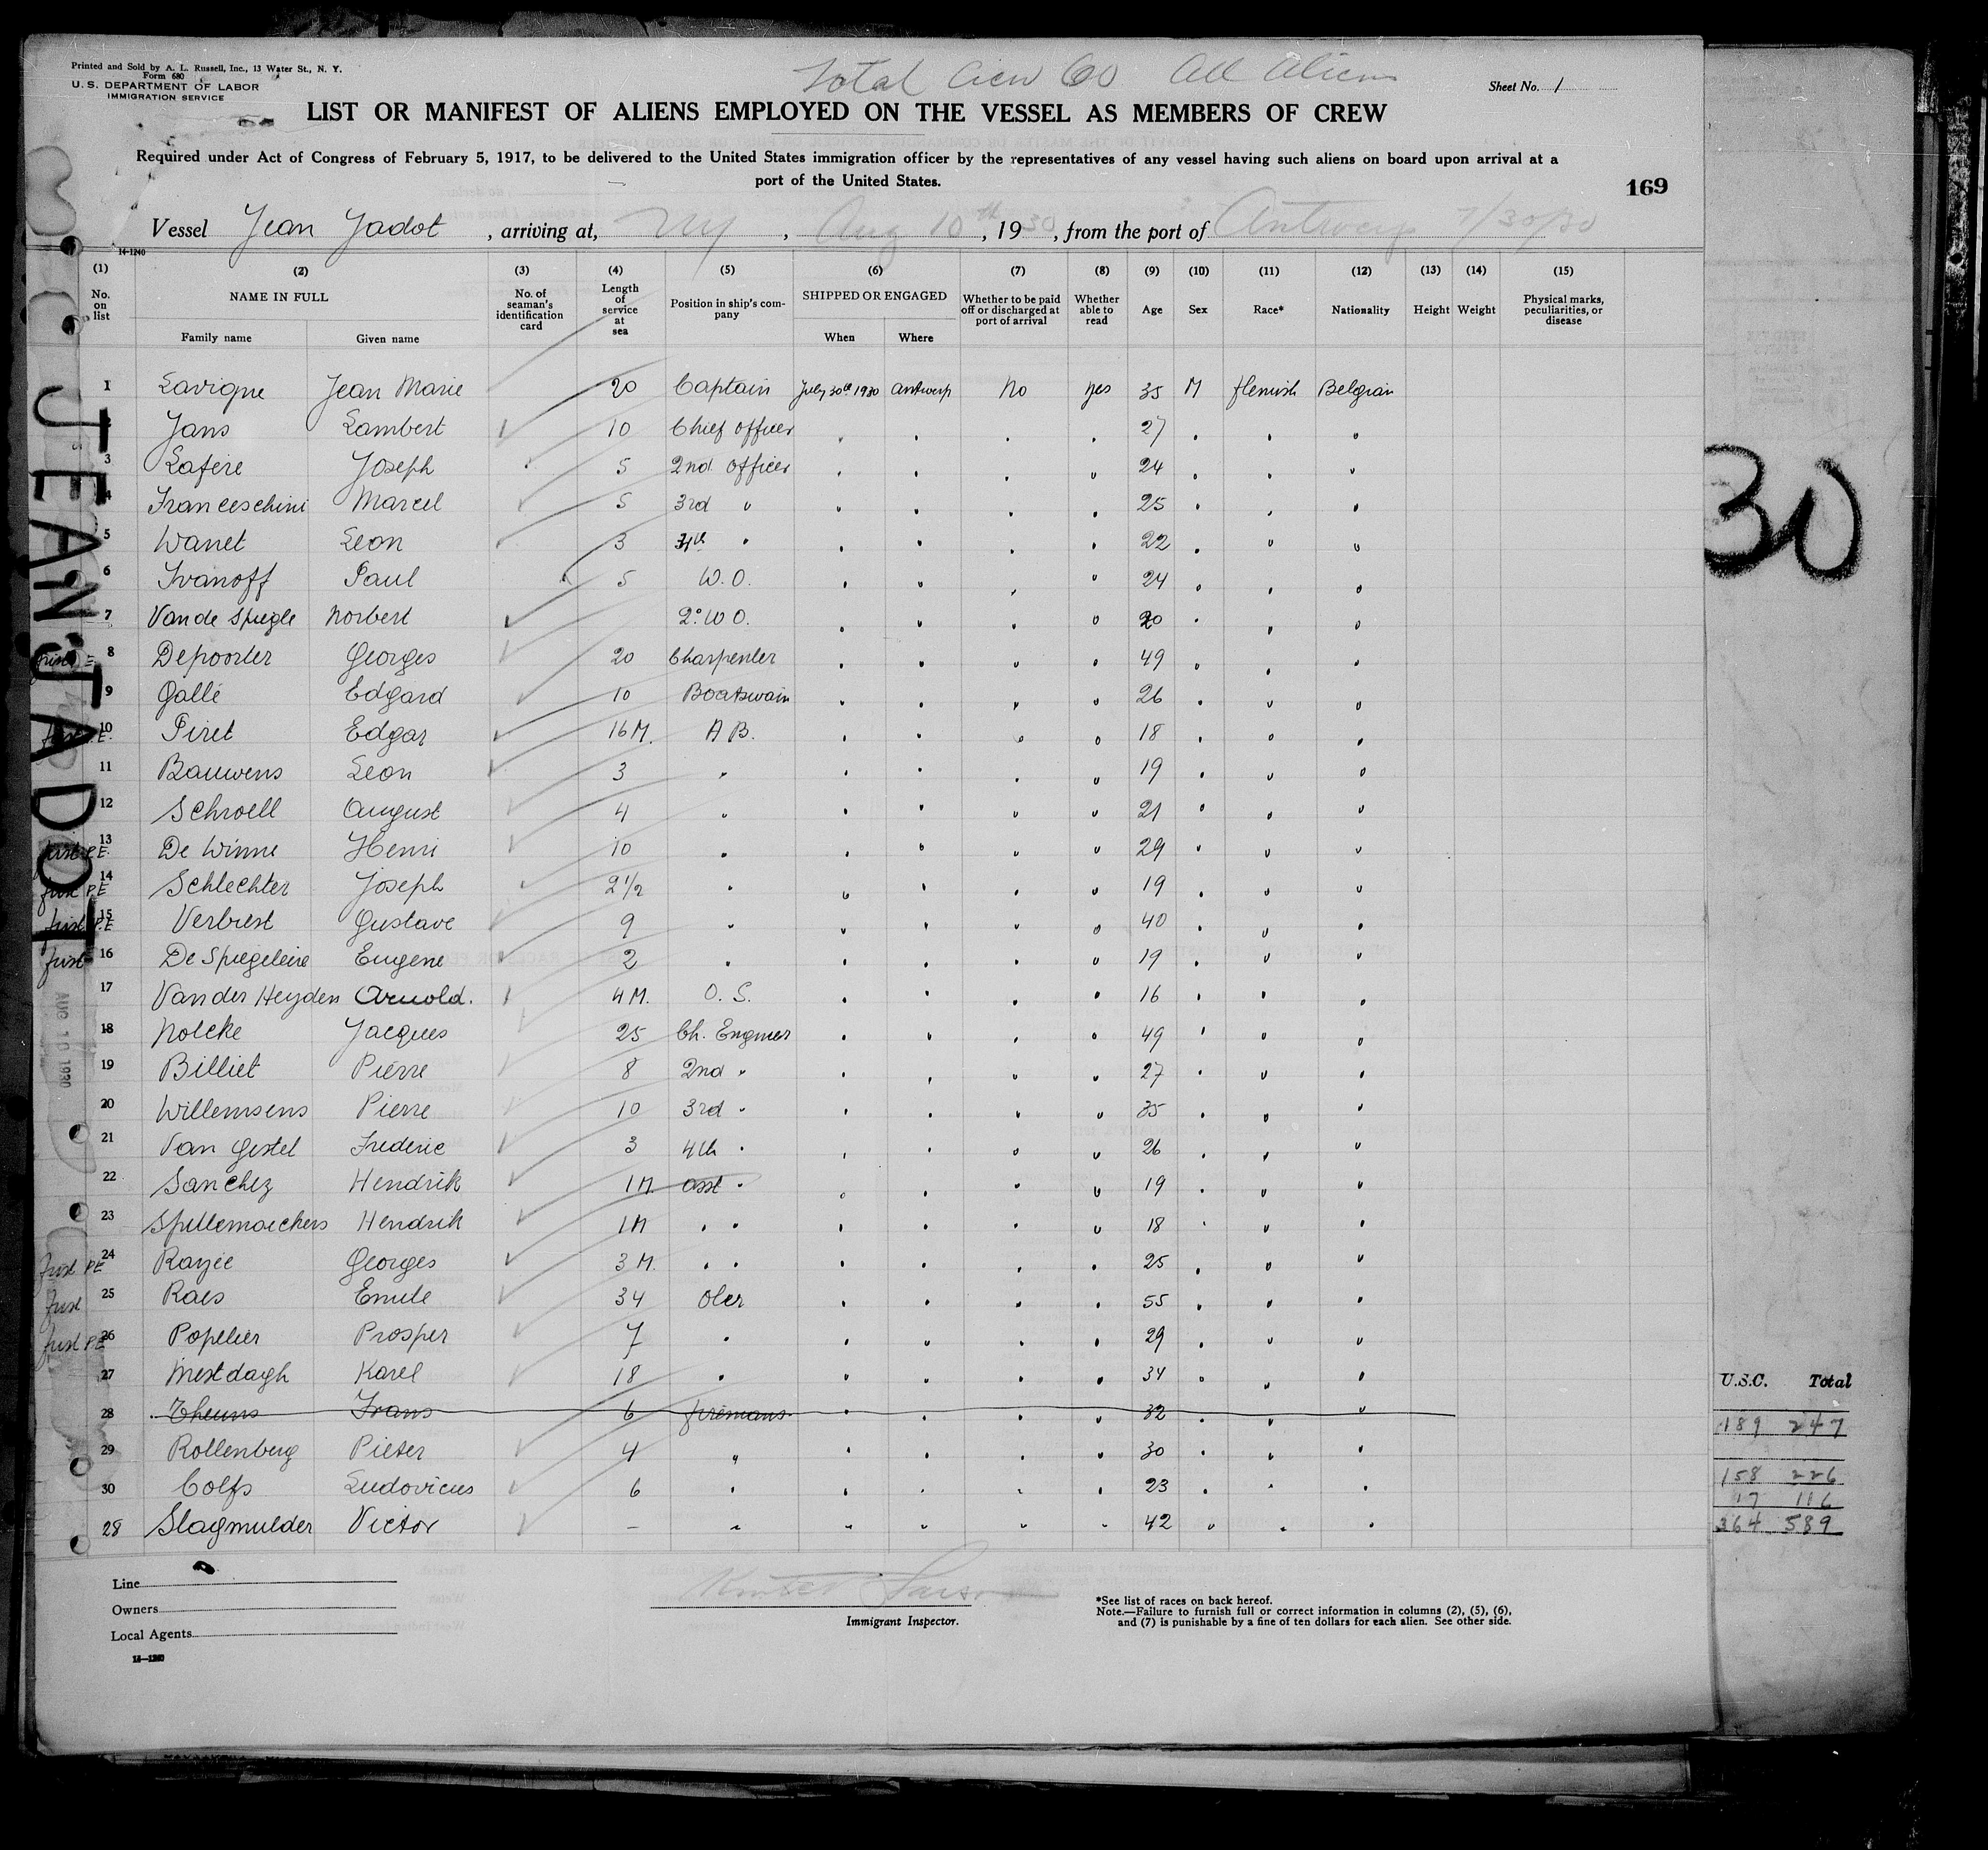 Printed and Sold by A. L. Russell, Inc., 13 Water St., N. Y.
Form 680
U. S. DEPARTMENT OF LABOR
IMMIGRATION SERVICE
Total Crew 60 All Aliens
Sheet No. 1
LIST OR MANIFEST OF ALIENS EMPLOYED ON THE VESSEL AS MEMBERS OF CREW
Required under Act of Congress of February 5, 1917, to be delivered to the United States immigration officer by the representatives of any vessel having such aliens on board upon arrival at a
port of the United States.
169
Vessel Jean Jadot, arriving at, NY, Aug 10th, 1930, from the port of Antwerp 7/30/30
14-1240
(1) (2) (3) (4) (5) (6) (7) (8) (9) (10) (11) (12) (13) (14) (15)
No. on list NAME IN FULL No. of seaman's identification card Length of service at sea Position in ship's company SHIPPED OR ENGAGED Whether to be paid off or discharged at port of arrival Whether able to read Age Sex Race* Nationality Height Weight Physical marks, peculiarities, or disease
Family name Given name When Where
1 Lavigne Jean Marie 20 Captain July 30th 1930 Antwerp No yes 35 M flemish Belgian
2 Jans Lambert 10 Chief officer " " " " 27 " " "
3 Lafère Joseph 5 2nd officer " " " " 24 " " "
4 Franceschini Marcel 5 3rd " " " " " 25 " " "
5 Wanet Leon 3 4th " " " " " 22 " " "
6 Ivanoff Paul 5 W.O. " " " " 24 " " "
7 Van de Spiegle Norbert 2° W O. " " " " 20 " " "
8 Depoorter Georges 20 Charpenter " " " " 49 " " "
9 Gallé Edgard 10 Boatswain " " " " 26 " " "
10 Piret Edgar 16 M. A B. " " " " 18 " " "
11 Bauwens Leon 3 " " " " " 19 " " "
12 Schroell August 4 " " " " " 21 " " "
first P.E. 13 De Winne Henri 10 " " " " " 29 " " "
first P.E 14 Schlechter Joseph 2 1/2 " " " " " 19 " " "
first P.E 15 Verbiest Gustave 9 " " " " " 40 " " "
first 16 De Spiegeleire Eugene 2 " " " " " 19 " " "
17 Van der Heyden Arnold. 4 M. O. S. " " " " 16 " " "
18 Nolcke Jacques 25 Ch. Engineer " " " " 49 " " "
19 Billiet Pierre 8 2nd " " " " " 27 " " "
20 Willemsens Pierre 10 3rd " " " " " 35 " " "
21 Van Gestel Frederic 3 4th " " " " " 26 " " "
22 Sanchez Hendrik 1 M. asst " " " " " 19 " " "
23 Spillemaeckers Hendrik 1 M " " " " " " 18 " " "
first P.E 24 Rayée Georges 3 M. " " " " " " 25 " " "
first 25 Raes Emile 34 Oler " " " " 55 " " "
first P.E 26 Popelier Prosper 7 " " " " " 29 " " "
27 Mestdagh Karel 18 " " " " " 34 " " "
28 Theuns Frans 6 firemans " " " " 32 " " "
29 Rollenberg Pieter 4 " " " " " 30 " " "
30 Colfs Ludovicus 6 " " " " " 23 " " "
28 Slagmulder Victor – " " " " " 42 " " "
Line
Owners
Local Agents
14—1240
Immigrant Inspector.
*See list of races on back hereof.
Note.—Failure to furnish full or correct information in columns (2), (5), (6),
and (7) is punishable by a fine of ten dollars for each alien. See other side.
JEAN JADOT
AUG 10 1930
30
U.S.C. Total
189 247
158 226
17 116
364 589